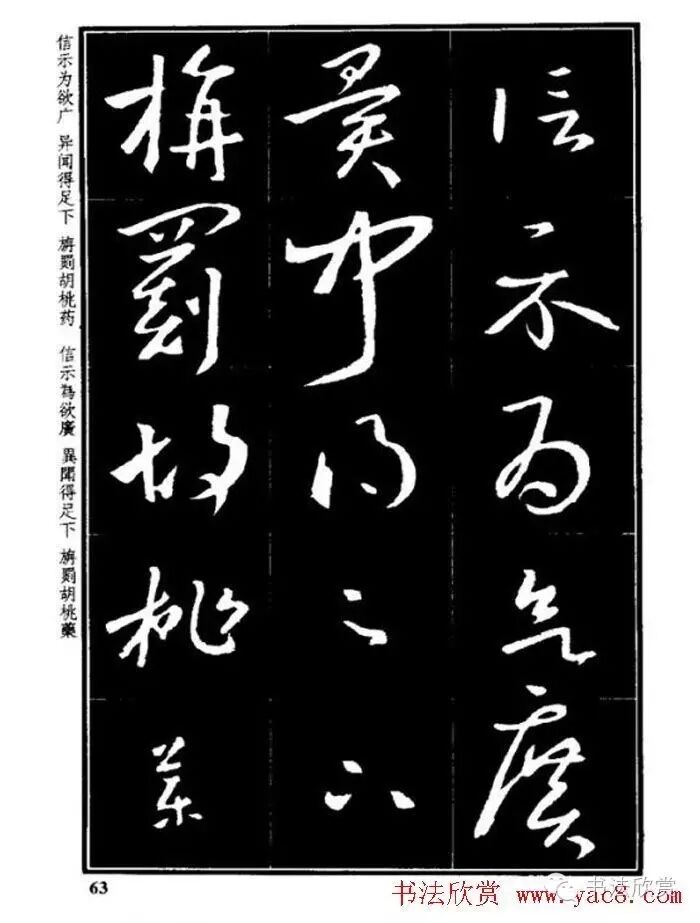 信示為欲廣
異聞得足下
旃罽胡桃藥
信示为欲广 异闻得足下 旃罽胡桃药 信示為欲廣 異聞得足下 旃罽胡桃藥
63
书法欣赏 www.yac8.com
书法欣赏